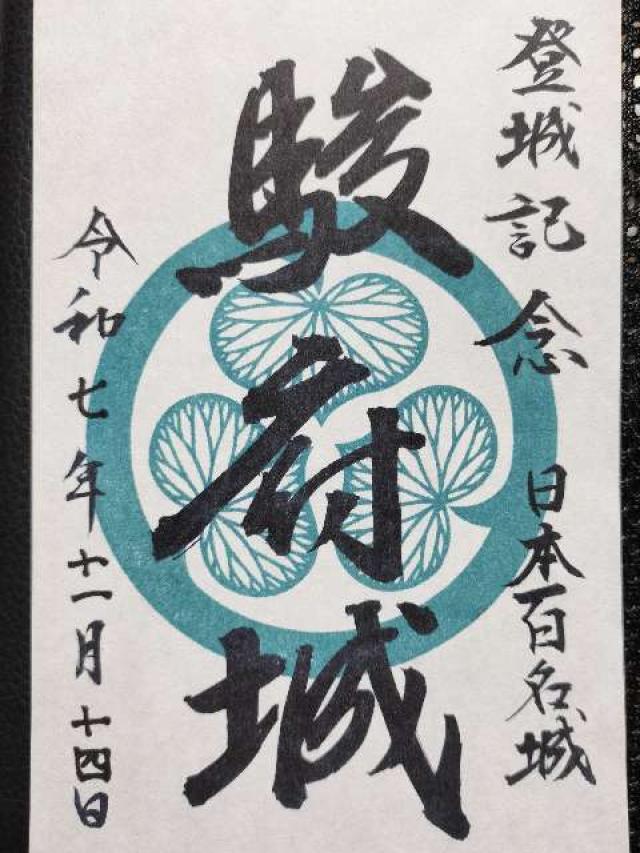 登城記念 日本百名城
駿府城
令和七年十一月十四日